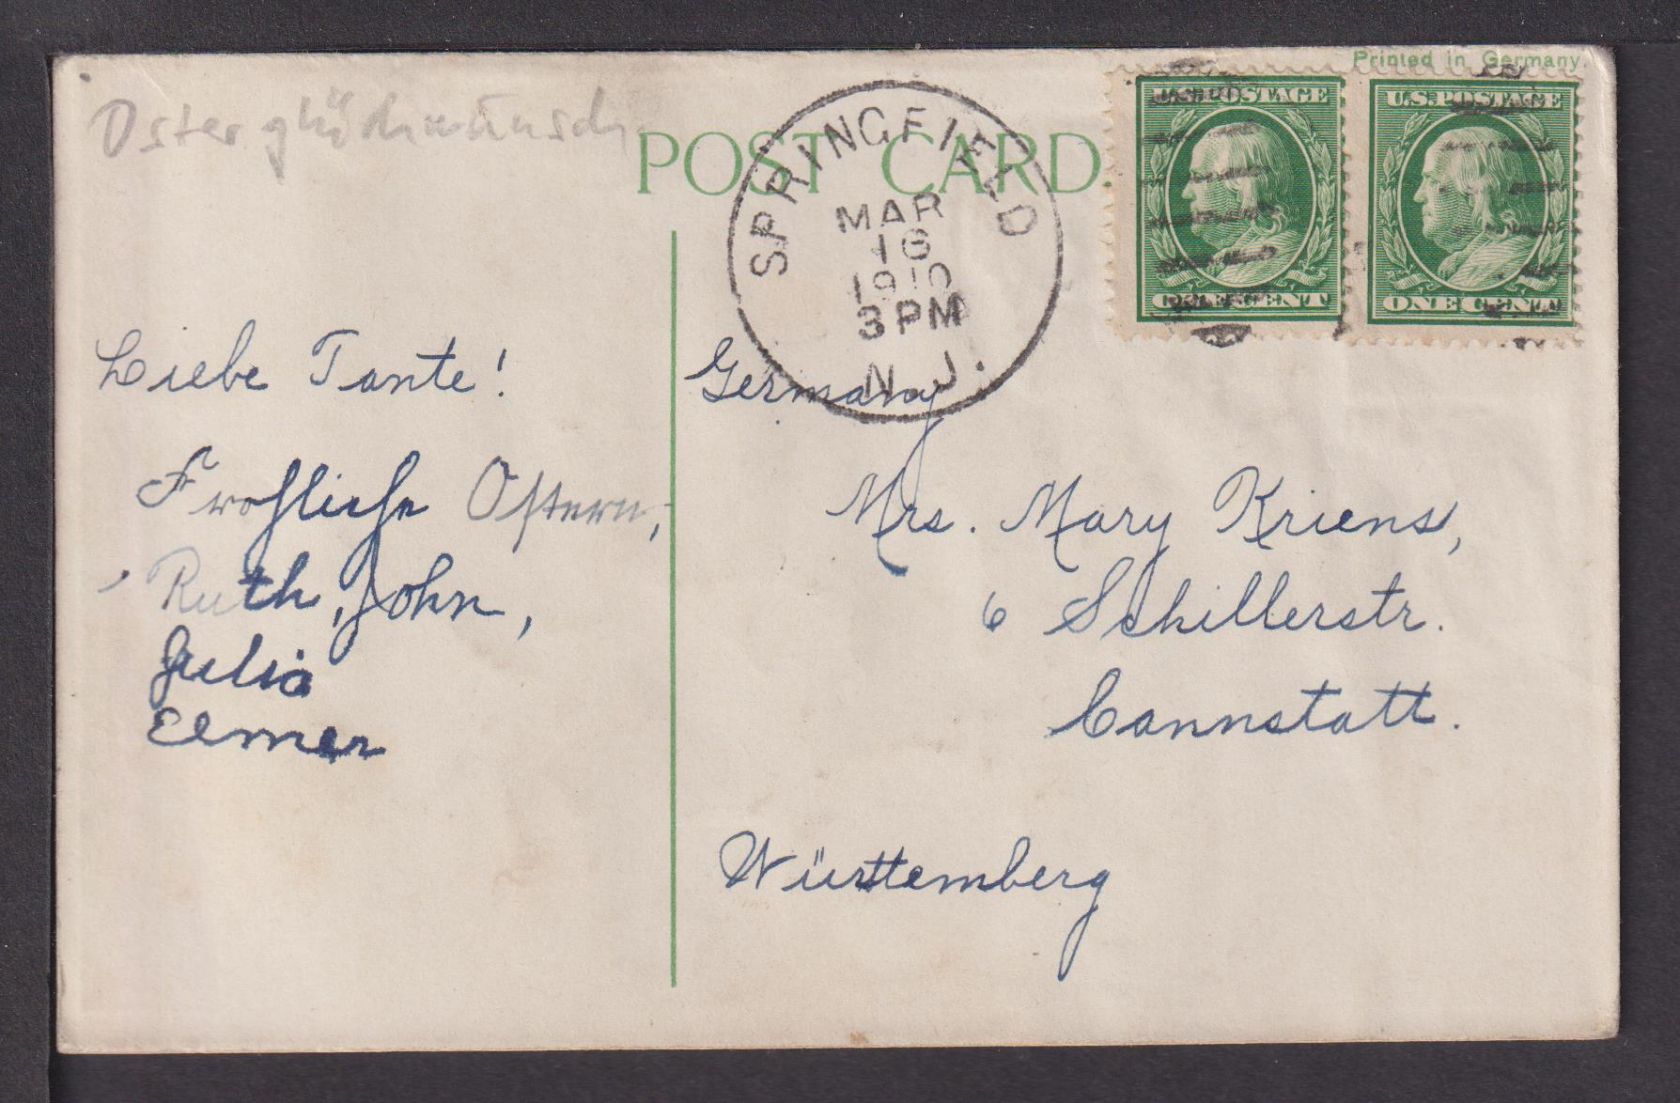 Osterglückwunsch
POST CARD
Printed in Germany.
U.S. POSTAGE
ONE CENT
U.S. POSTAGE
ONE CENT
SPRINGFIELD
MAR
16
1910
3 PM
N. J.
Liebe Tante!
Fröhliche Ostern,
Ruth, John,
Julia
Elmer
Germany
Mrs. Mary Kriens,
6 Schillerstr.
Cannstatt.
Württemberg